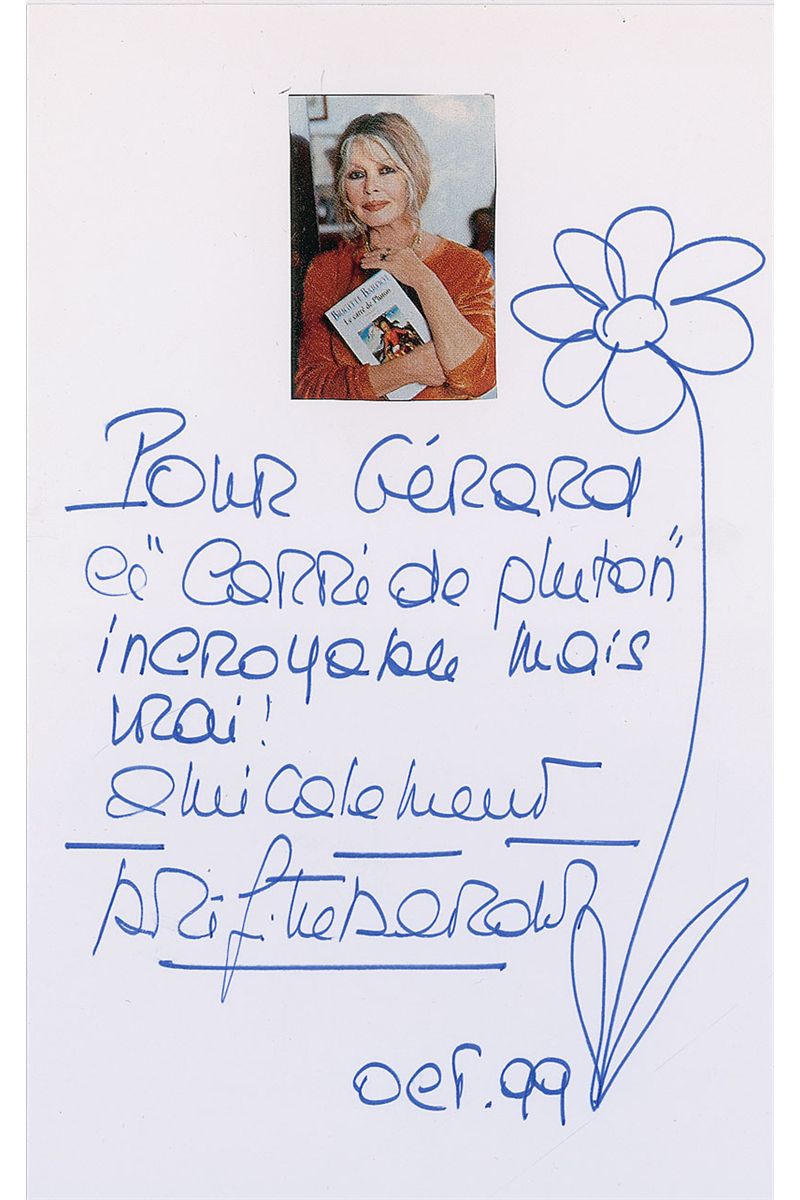 BRIGITTE BARDOT
Le carré de Pluton
POUR GÉRARD
ce "CARRÉ de pluton"
incroyable mais
vrai!
amicalement
Brigitte Bardot
oct. 99